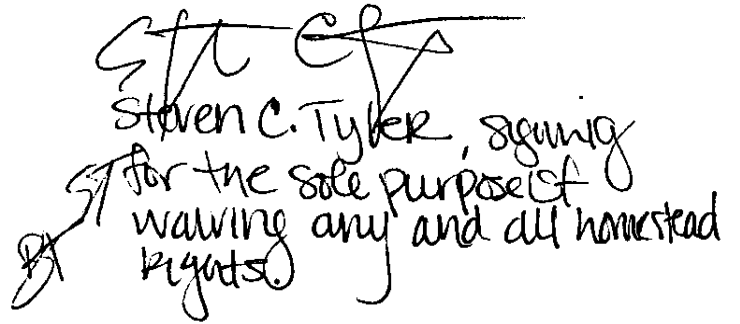 Steven C. Tyler, signing
ST for the sole purpose of
waiving any and all homestead
BT rights.